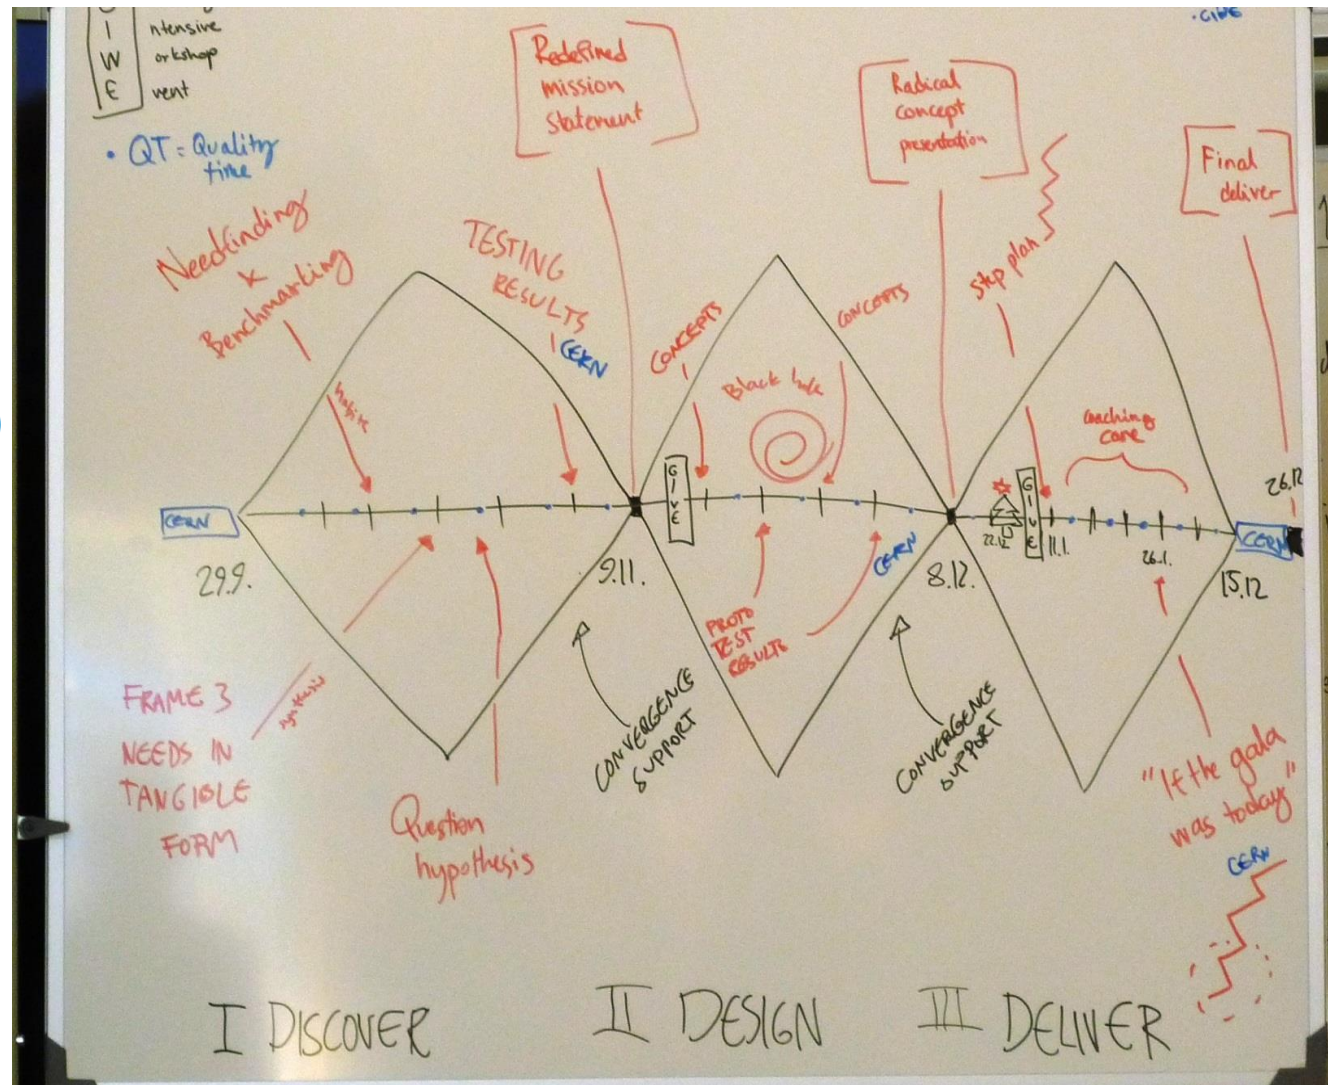 I ntensive
W orkshop
E vent
• QT = Quality
time
• GIVE
Redefined
mission
statement
Radical
concept
presentation
Final
deliver
Needfinding
x
Benchmarking
TESTING
RESULTS
CERN
CONCEPTS
Black hole
CONCEPTS
step plan
coaching
CERN
29.9.
9.11.
GIVE
CERN
8.12.
22.12
GIVE
11.1.
26.1.
15.12
CERN
26.12
PROTO
TEST
RESULTS
CONVERGENCE
SUPPORT
CONVERGENCE
SUPPORT
FRAME 3
NEEDS IN
TANGIBLE
FORM
Question
hypothesis
"If the gala
was today"
CERN
I DISCOVER
II DESIGN
III DELIVER